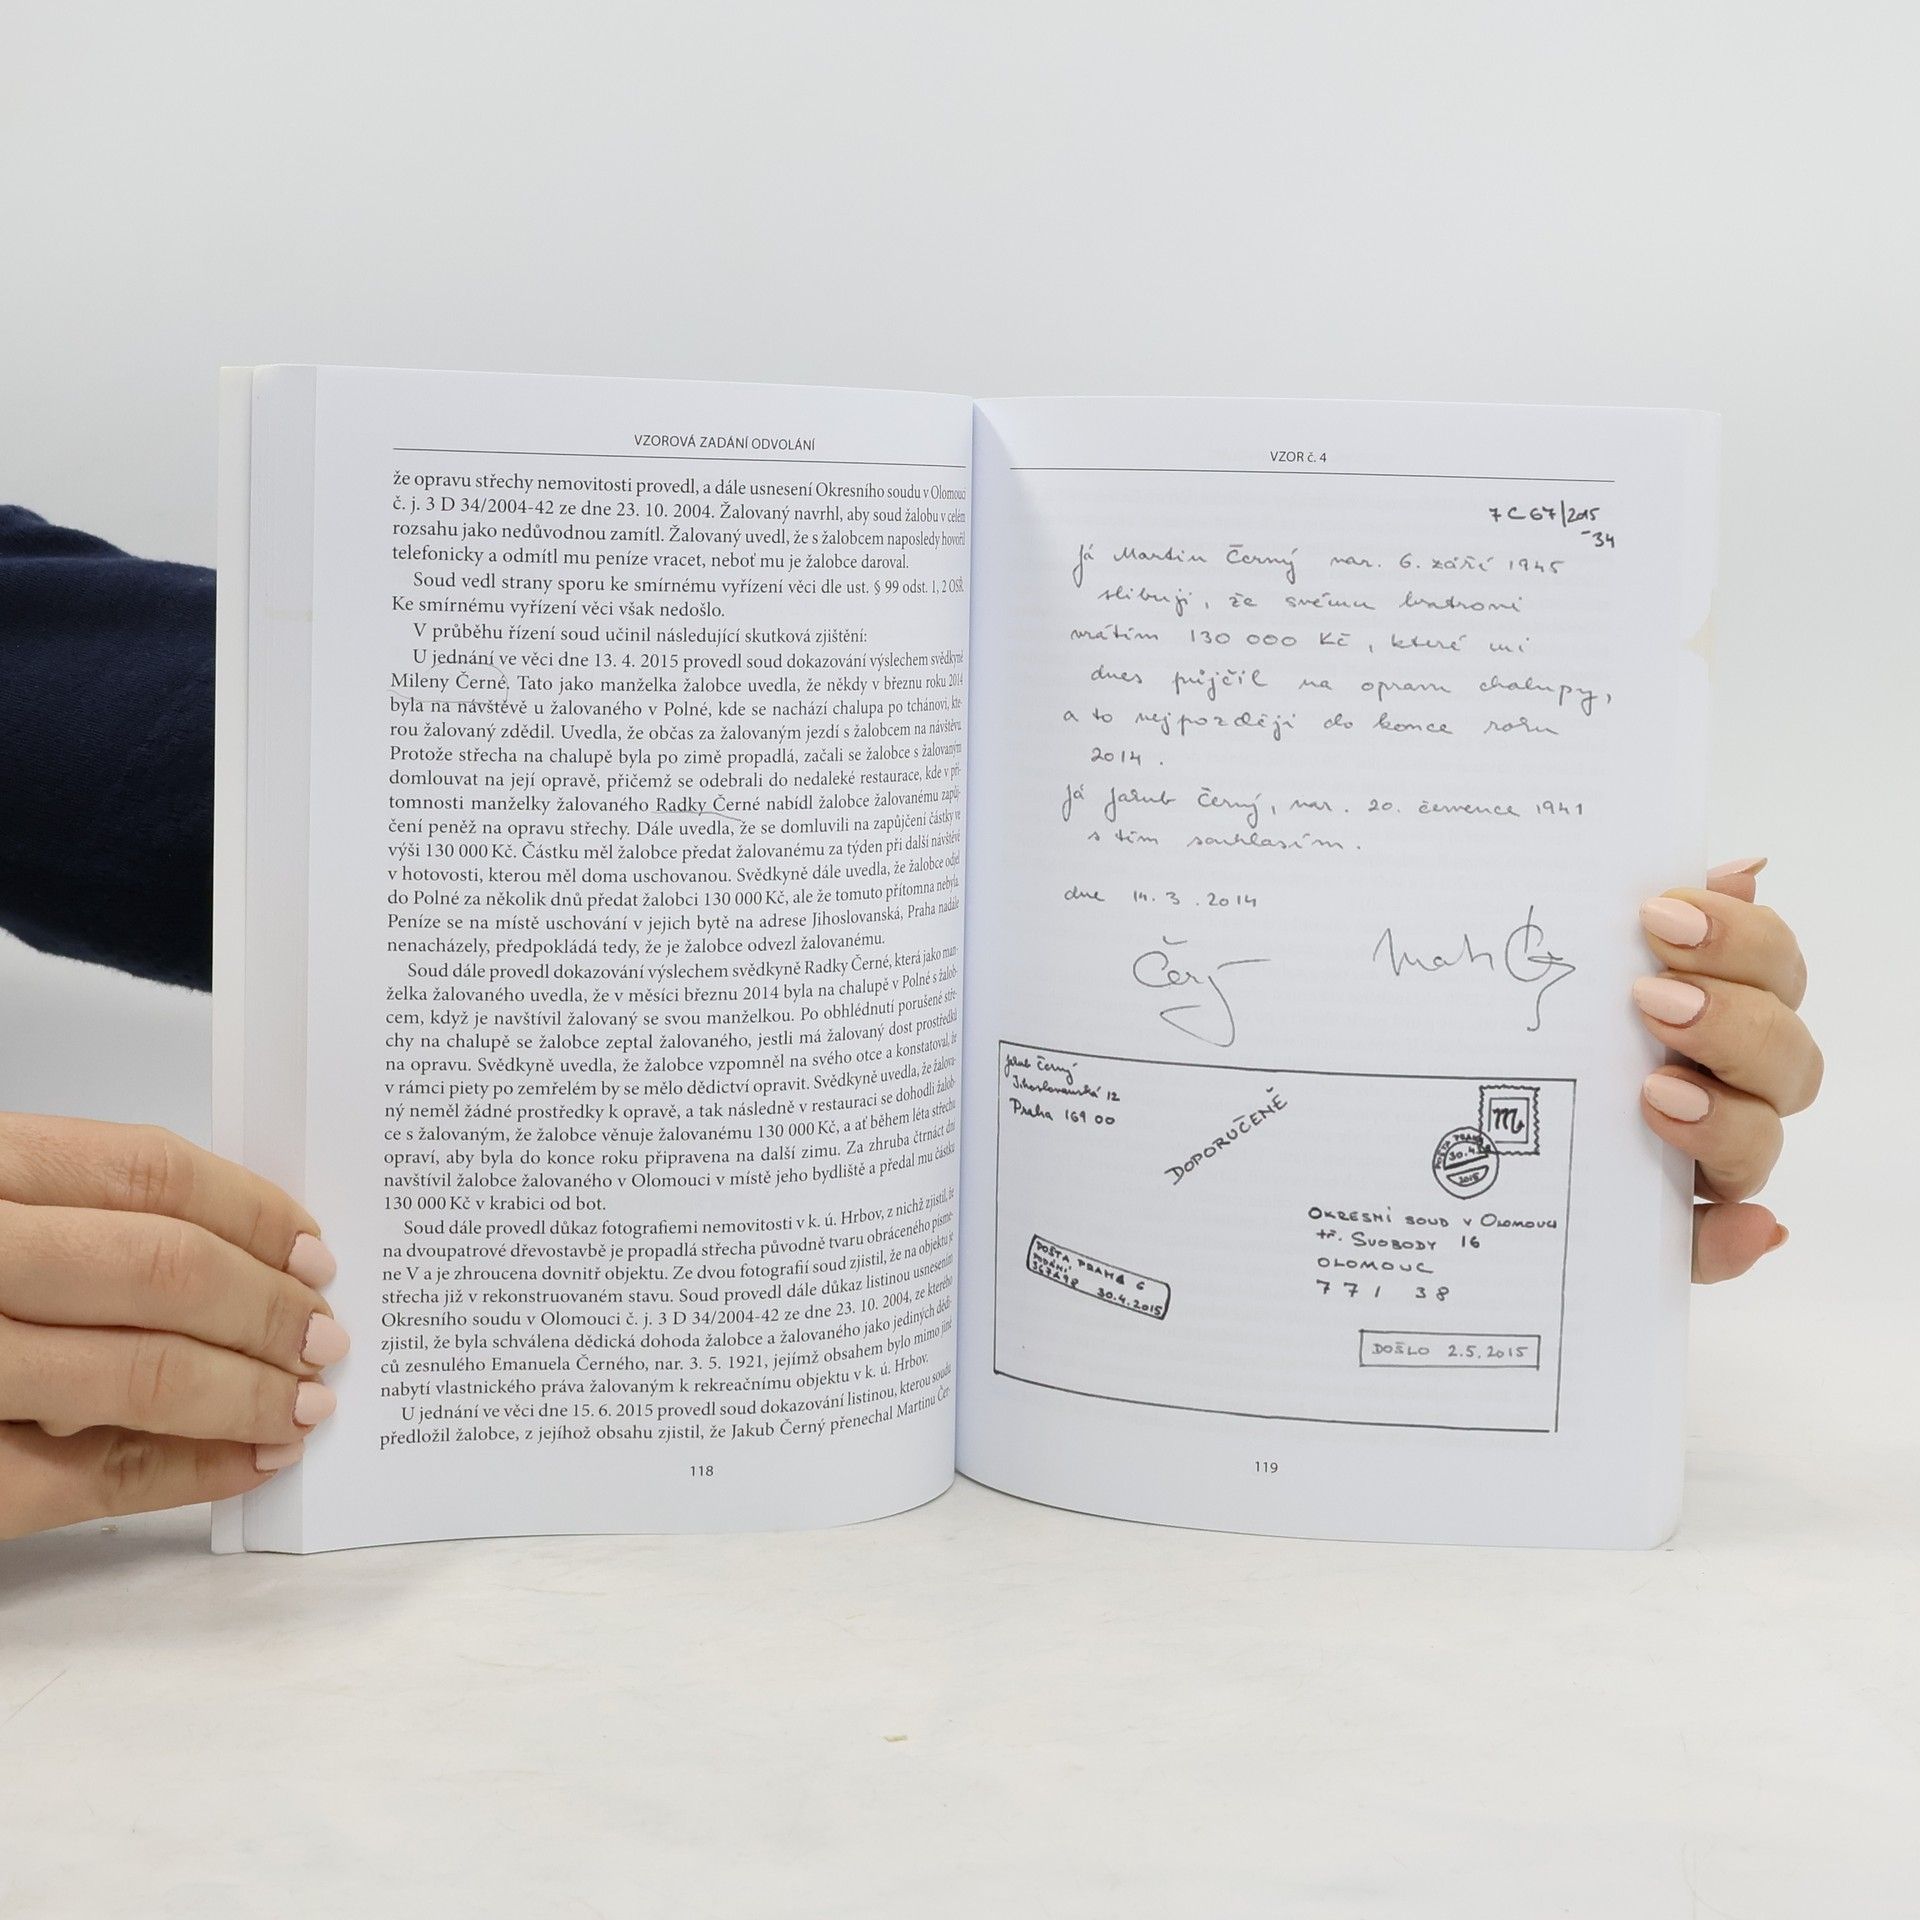 VZOROVÁ ZADÁNÍ ODVOLÁNÍ
že opravu střechy nemovitosti provedl, a dále usnesení Okresního soudu v Olomouci
č. j. 3 D 34/2004-42 ze dne 23. 10. 2004. Žalovaný navrhl, aby soud žalobu v celém
rozsahu jako nedůvodnou zamítl. Žalovaný uvedl, že s žalobcem naposledy hovořil
telefonicky a odmítl mu peníze vracet, neboť mu je žalobce daroval.
Soud vedl strany sporu ke smírnému vyřízení věci dle ust. § 99 odst. 1, 2 OSŘ.
Ke smírnému vyřízení věci však nedošlo.
V průběhu řízení soud učinil následující skutková zjištění:
U jednání ve věci dne 13. 4. 2015 provedl soud dokazování výslechem svědkyně
Mileny Černé. Tato jako manželka žalobce uvedla, že někdy v březnu roku 2014
byla na návštěvě u žalovaného v Polné, kde se nachází chalupa po tchánovi, kte-
rou žalovaný zdědil. Uvedla, že občas za žalovaným jezdí s žalobcem na návštěvu.
Protože střecha na chalupě byla po zimě propadlá, začali se žalobce s žalovaným
domlouvat na její opravě, přičemž se odebrali do nedaleké restaurace, kde v pří-
tomnosti manželky žalovaného Radky Černé nabídl žalobce žalovanému zapůj-
čení peněž na opravu střechy. Dále uvedla, že se domluvili na zapůjčení částky ve
výši 130 000 Kč. Částku měl žalobce předat žalovanému za týden při další návštěvě
v hotovosti, kterou měl doma uschovanou. Svědkyně dále uvedla, že žalobce odjel
do Polné za několik dnů předat žalobci 130 000 Kč, ale že tomuto přítomna nebyla.
Peníze se na místě uschování v jejich bytě na adrese Jihoslovanská, Praha nadále
nenacházely, předpokládá tedy, že je žalobce odvezl žalovanému.
Soud dále provedl dokazování výslechem svědkyně Radky Černé, která jako man-
želka žalovaného uvedla, že v měsíci březnu 2014 byla na chalupě v Polné s žalob-
cem, když je navštívil žalovaný se svou manželkou. Po obhlédnutí porušené stře-
chy na chalupě se žalobce zeptal žalovaného, jestli má žalovaný dost prostředků
na opravu. Svědkyně uvedla, že žalobce vzpomněl na svého otce a konstatoval, že
v rámci piety po zemřelém by se mělo dědictví opravit. Svědkyně uvedla, že žalova-
ný neměl žádné prostředky k opravě, a tak následně v restauraci se dohodli žalob-
ce s žalovaným, že žalobce věnuje žalovanému 130 000 Kč, a ať během léta střechu
opraví, aby byla do konce roku připravena na další zimu. Za zhruba čtrnáct dní
navštívil žalobce žalovaného v Olomouci v místě jeho bydliště a předal mu částku
130 000 Kč v krabici od bot.
Soud dále provedl důkaz fotografiemi nemovitosti v k. ú. Hrbov, z nichž zjistil, že
na dvoupatrové dřevostavbě je propadlá střecha původně tvaru obráceného písme-
ne V a je zhroucena dovnitř objektu. Ze dvou fotografií soud zjistil, že na objektu je
střecha již v rekonstruovaném stavu. Soud provedl dále důkaz listinou usnesením
Okresního soudu v Olomouci č. j. 3 D 34/2004-42 ze dne 23. 10. 2004, ze kterého
zjistil, že byla schválena dědická dohoda žalobce a žalovaného jako jediných dědi-
ců zesnulého Emanuela Černého, nar. 3. 5. 1921, jejímž obsahem bylo mimo jiné
nabytí vlastnického práva žalovaným k rekreačnímu objektu v k. ú. Hrbov.
U jednání ve věci dne 15. 6. 2015 provedl soud dokazování listinou, kterou soudu
předložil žalobce, z jejíhož obsahu zjistil, že Jakub Černý přenechal Martinu Čer-
118
VZOR č. 4
7 C 67/2015
-34
Já Martin Černý nar. 6. září 1945
slibuji, že svému bratrovi
vrátím 130 000 Kč, které mi
dnes půjčil na opravu chalupy,
a to nejpozději do konce roku
2014.
Já Jakub Černý, nar. 20. července 1941
s tím souhlasím.
dne 14.3.2014
Jakub Černý
Jihoslovanská 12
Praha 169 00
DOPORUČENĚ
POŠTA PRAHA 6
30.4.
2015
OKRESNÍ SOUD V OLOMOUCI
tř. SVOBODY 16
OLOMOUC
771 38
POŠTA PRAHA 6
PODÁNÍ
30.4.2015
DOŠLO 2.5.2015
119